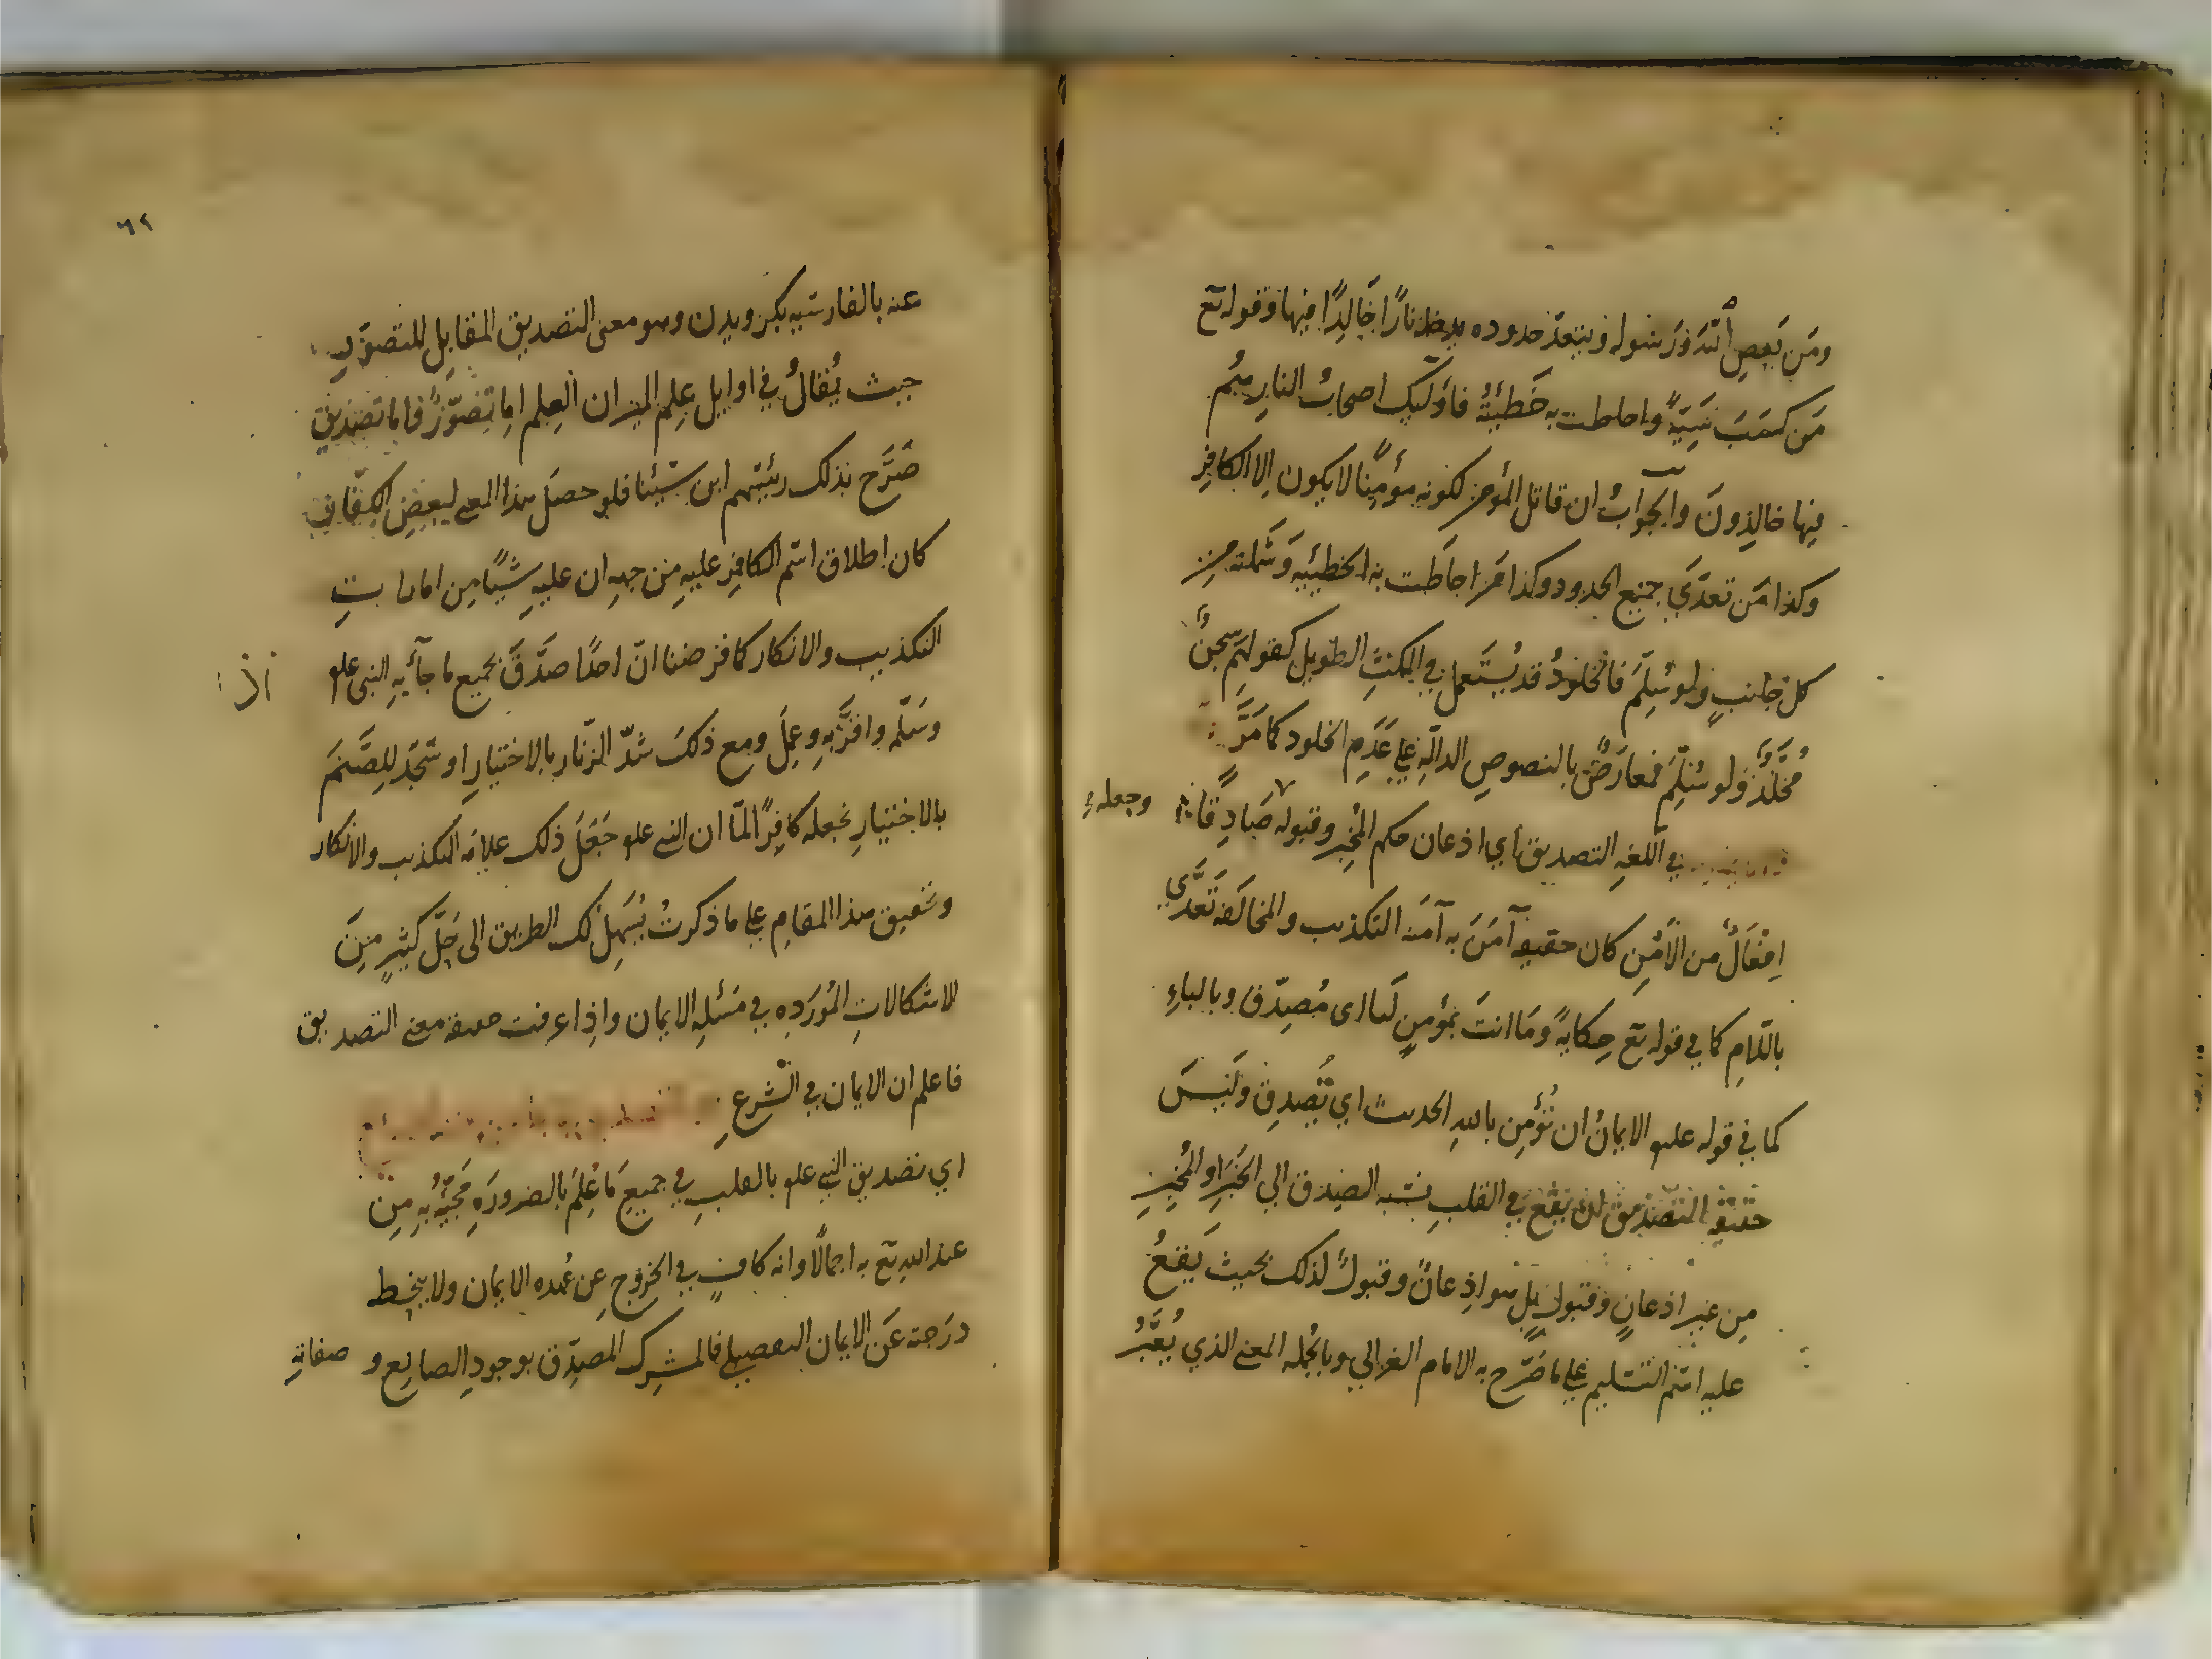 ومَن يَعصِ اللّهَ وَرَسُوله ويتعدّ حدوده يدخله نارًا خَالِدًا فيها وقوله تع
مَن كسَبَ سَيّئَةً واحاطت به خَطيئَتُهُ فأولَئِك اصحابُ النارِ هُم
فيها خالِدِونَ وَالجوَابُ ان قاتل المؤمن لكونه مؤمِنًا لا يكون اِلا الكافِر
وكذا مَن تعدَّيَ جميع الحدود وكذا مَن احاطَت به الخطيئَيه وَشَملته مِن
كل جانبٍ ولو سُلِّمَ فالخُلودُ قد يُستَعمل في المكثِ الطويل كقولهم سِجنٌ
مُخَلَّدٌ وَلو سُلِّمَ فمعارَضٌ بالنصوصِ الدالّه على عَدَمِ الخلود كما مَرَّ
في اللغهِ التصديق اي اذعان حكم المُخبِر وقبوله صَادِقًا وجعله
اِفعَالٌ من الاَمْنِ كان حقيقه آمَنَ به آمنه التكذيب والمخالفَه تَعَدَّي
باللامِ كما في قوله تع حِكايةً وَمَا انتَ بمُؤمنٍ لَنا اى مُصِدّق وبالباءِ
كما في قوله علم الايمانُ ان تُؤمِن باللهِ الحديث اي تُصِدِق وَلَيسَ
حَقيقه التصديق ان يَقَع في القلبِ نسبه الصِدق الي الخَبَرِ او المُخبِرِ
مِن غير اذعانٍ وَقبولٍ بل هو اذِعانٌ وقبولٌ لذلك بحيث يَقعُ
عليه اسم التسليم على ما صَرَّح به الامام الغزالي وبالجُمله المعنى الذي يُعَبَّرُ
٦٢
عنه بالفارسيه بكرويدن وهو معنى التصديق المقابِل للتصوّر
حيث يُقالُ في اوايل عِلِم الميزان العِلم امِا تصَوّرٌ وَاما تصديق
صَرَّح بذلك رئيسهم ابن سينا فلو حصَل هذا المعنى لبعضِ الكفّار
كان اِطلاق اسم الكافِرِ عليهِ مِن جههِ ان عليهِ شيئًا مِن امارات
التكذيب والانكار كما فرضنا انّ احدًا صدَّقَ بجميع ما جآء به النبي علم
وَسَلّمه واقرَّ به وعِمل ومع ذلكَ شدّ الزنّار بالاختيارِ او سَجَد لِلصَّنَم
بالاختيارِ نجعله كافِرًا لمّا ان النبي علم جَعَلَ ذلك علامَه التكذيب والانكار
وتحقيق هذا المقامِ على ما ذكرتُ يُسَهِّل لك الطريق الى حَلِّ كثيرٍ مِنَ
الاشكالاتِ المُورَدهِ في مَسَئلهِ الايمان واذا عرفت حقيقه معنى التصديق
فاعلم ان الايمان في الشرعِ
اي تصديق النبي علم بالقلبِ في جميعِ مَا عُلِمَ بالضرورَهِ مَجِيئُهُ بهِ مِن
عند اللهِ تع به اجمالًا وانه كافٍ في الخروجِ عِن عُهده الايمان ولا ينحط
درَجته عَن الايمان التفصيلي فالمشرِك المصدِّق بوجودِ الصانِع و صفاتهِ